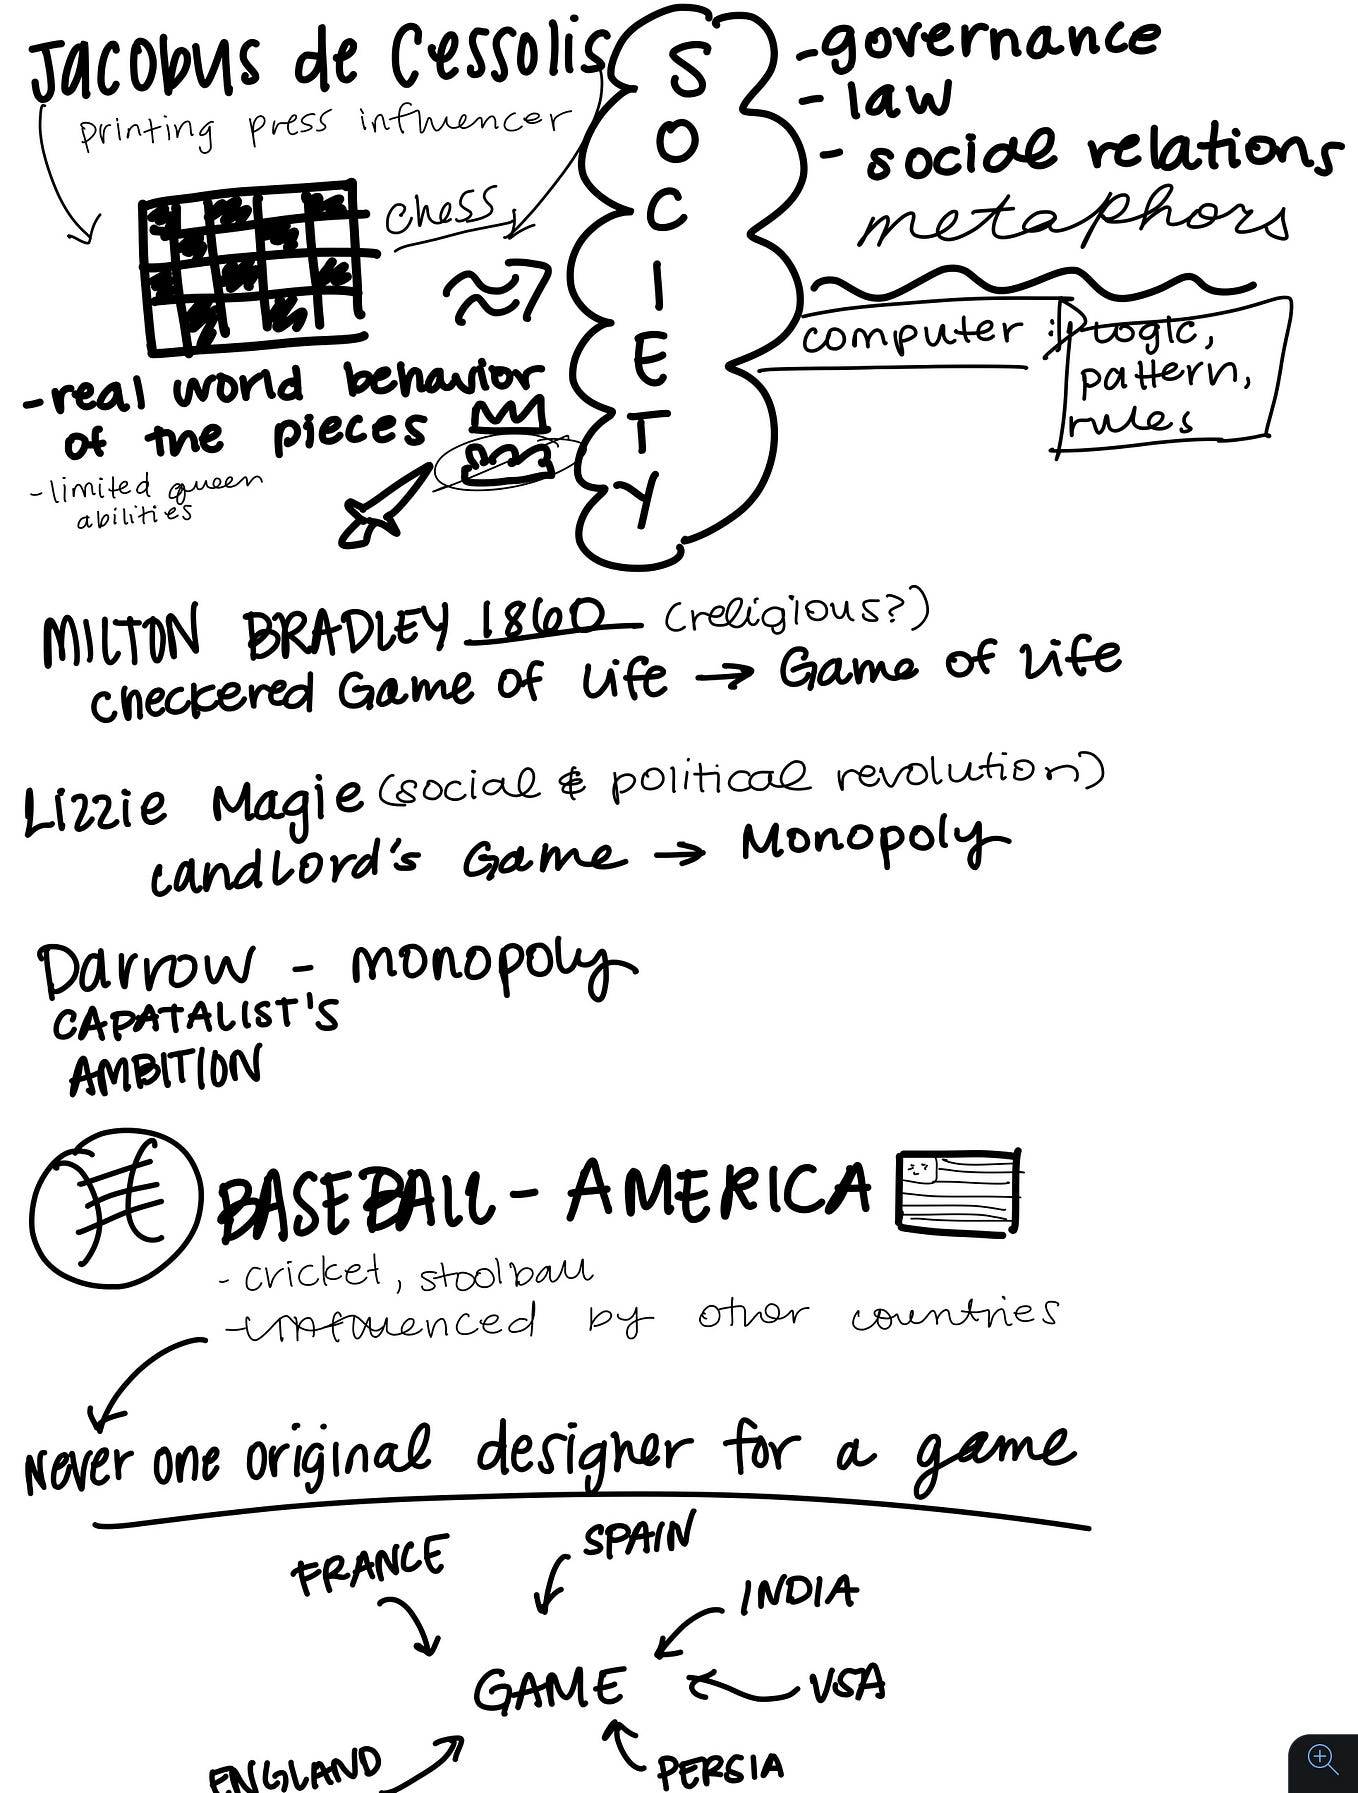 Jacobus de Cessolis
printing press influencer
chess
-real world behavior
of the pieces
-limited queen
abilities
SOCIETY
-governance
- law
- social relations
metaphors
computer :
logic,
pattern,
rules
MILTON BRADLEY 1860 (religious?)
Checkered Game of Life → Game of Life
Lizzie Magie (social & political revolution)
Landlord's Game → Monopoly
Darrow - monopoly
CAPATALIST'S
AMBITION
BASEBALL - AMERICA
- cricket, stoolball
-influenced by other countries
Never one original designer for a game
FRANCE
SPAIN
INDIA
GAME
USA
ENGLAND
PERSIA